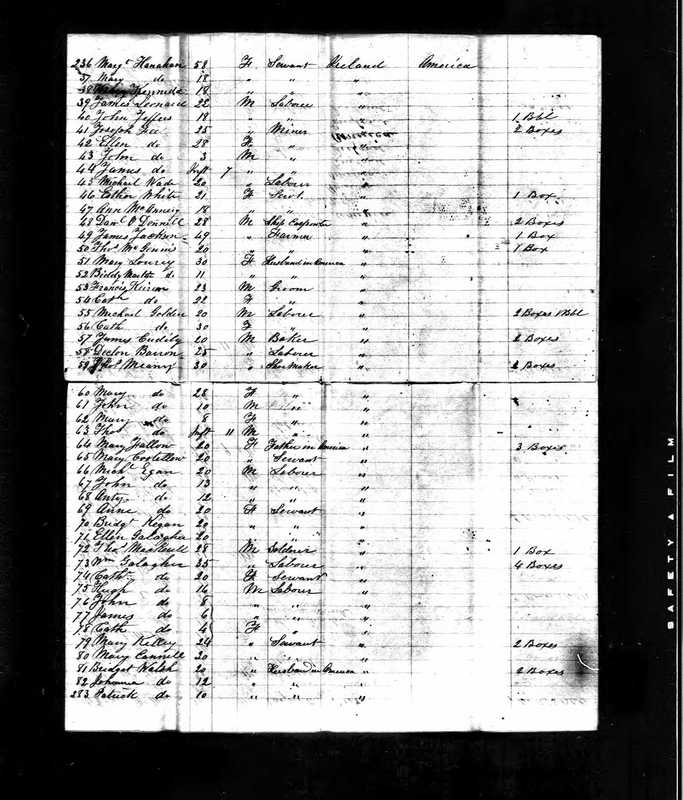 236 Margt Hanahan 58 F Servant Ireland America
37 Mary do 18 " " "
38 Kennedy 18 " "
39 James Leonard 22 M Laborer "
40 John Jeffers 18 " " 1 Bbl
41 Joseph Fee 25 " Miner 2 Boxes
42 Ellen do 28 F "
43 John do 3 M " "
44 James do Inft 7 " " "
45 Michael Wade 20 " Laborer "
46 Esther White 21 F Servt. " 1 Box
47 Ann 18 " " "
48 Danl O Donnell 28 M Ship Carpenter " 2 Boxes
49 James Jackson 49 " Farmer " 1 Box
50 Thos Mc Ginnis 20 " " " 1 Box
51 Mary Lowry 30 F Husband in America "
52 Biddy do 11 " " "
53 Francis 23 M Groom "
54 Cath do 22 F " "
55 Michael Golden 20 M Laborer " 2 Boxes 1 Bbl
56 Cath do 30 F " "
57 James 20 M Baker " 2 Boxes
58 Barron 25 " Laborer "
59 Thos Meany 30 " Shoe Maker " 2 Boxes
60 Mary do 28 F " "
61 John do 10 M " "
62 Mary do 8 F " "
63 Thos do Inft 11 M " "
64 Mary Fallow 20 F Father in America " 3 Boxes
65 Mary Costellow 20 " Servant "
66 Michl Egan 20 M Laborer "
67 John do 13 " " "
68 Anty do 12 " " "
69 Anne do 20 F Servant "
70 Bridgt Kegan 20 " " "
71 Ellen Galagher 20 " " "
72 Thos 28 M Soldier " 1 Box
73 Wm Galagher 35 " Laborer " 4 Boxes
74 Cath do 20 F Servant "
75 Hugh do 16 M Laborer "
76 John do 8 " " "
77 James do 6 " " "
78 Cath do 4 F " "
79 Mary Kelley 24 " Servant " 2 Boxes
80 Mary Connell 20 " " "
81 Bridget Walsh 20 " Husband in America " 2 Boxes
82 Johanna do 12 " " "
283 Patrick do 10 " " "
SAFETY FILM